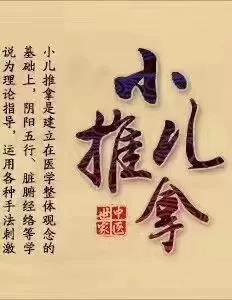 小儿推拿
中医
世家
小儿推拿是建立在医学整体观念的
基础上，阴阳五行、脏腑经络等学
说为理论指导，运用各种手法刺激